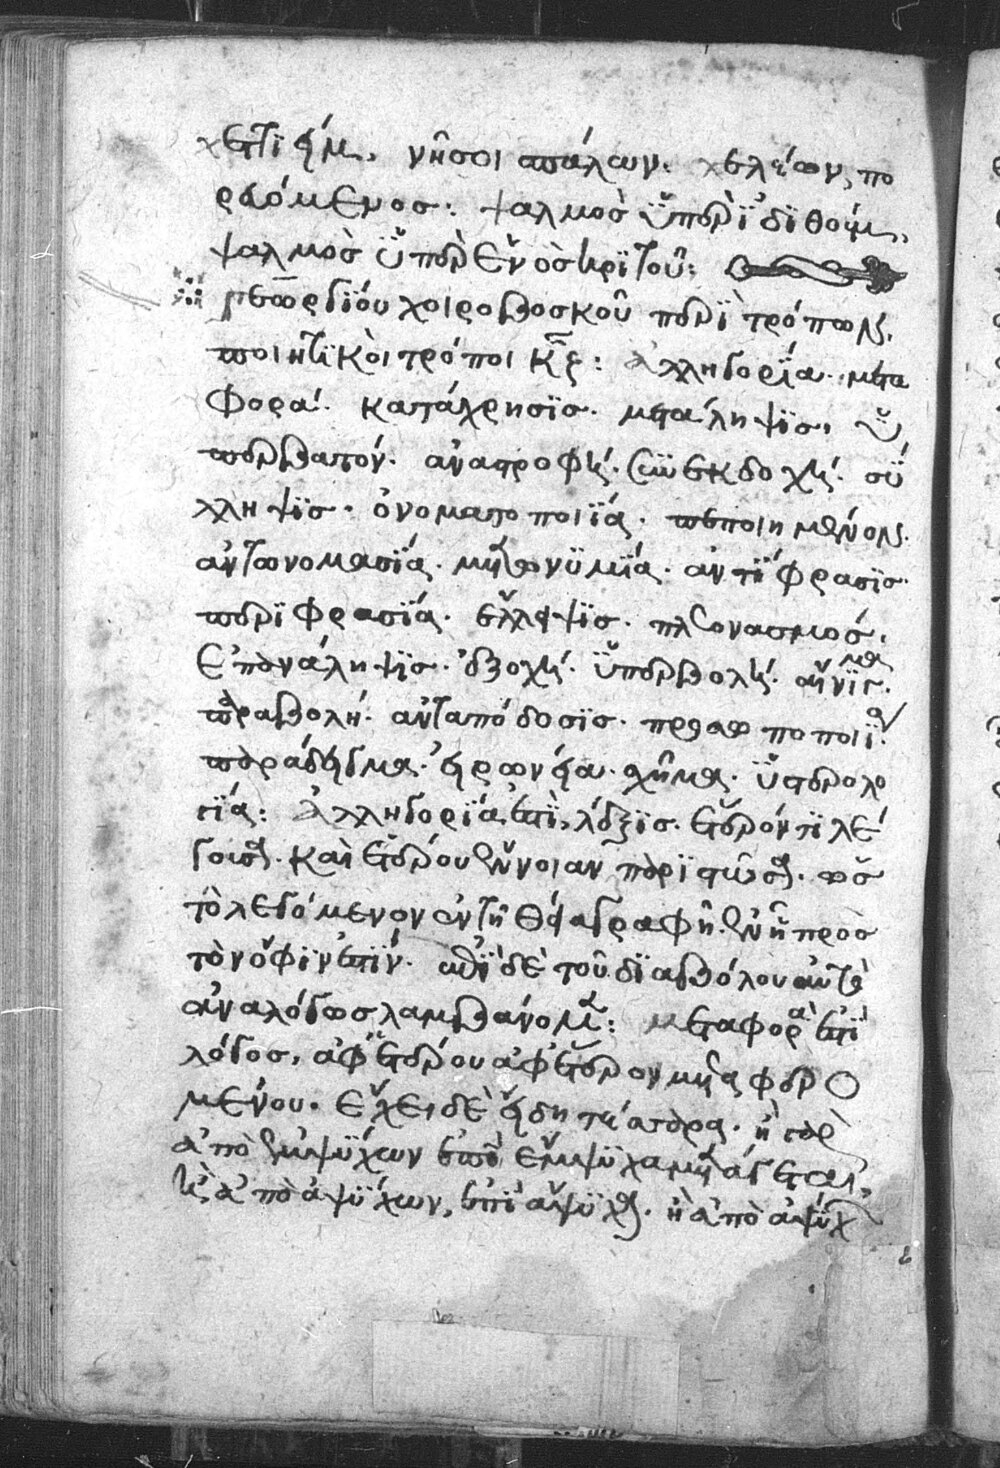 νῆσοι πάλων. χελιδὼν πο
ρευόμενος: ψαλμὸς ὑπὲρ ἰδιθούμ,
ψαλμὸς ὑπὲρ ἑνὸς κριτοῦ:
γεωργίου χοιροβοσκοῦ περὶ τρόπων.
ποιητικοὶ τρόποι κζ: ἀλληγορία. μετα
φορά. κατάχρησις. μετάληψις. ὑ
περβατόν. ἀναστροφή. συνεκδοχή. σύ
λληψις. ὀνοματοποιία. πεποιημένον.
ἀντωνομασία. μετωνυμία. ἀντίφρασις.
περίφρασις. ἔλλειψις. πλεονασμός.
ἐπανάληψις. ἐξοχή. ὑπερβολή. αἴνιγμα.
παραβολή. ἀνταπόδοσις. προσωποποιία.
παράδειγμα. εἰρωνεία. σχῆμα. ὑστερολο
γία: ἀλληγορία ἐστὶ λέξις ἕτερόν τι λέ
γουσα. καὶ ἑτέρου ἔννοιαν παριστῶσα. ὡς
τὸ λεγόμενον ἐν τῇ θείᾳ γραφῇ πρὸς
τὸν ὄφιν ἐπὶ δὲ τοῦ διαβόλου
ἀναλόγως λαμβάνομεν: μεταφορά ἐστι
λόγος, ἀφ' ἑτέρου ἐφ' ἕτερον μεταφερο
μένου. ἔχει δὲ εἴδη τέσσαρα. ἢ γὰρ
ἀπὸ ἐμψύχων ἐπὶ ἔμψυχα μετάγεται,
ἢ ἀπὸ ἀψύχων, ἐπὶ ἄψυχα. ἢ ἀπὸ ἀψύχ